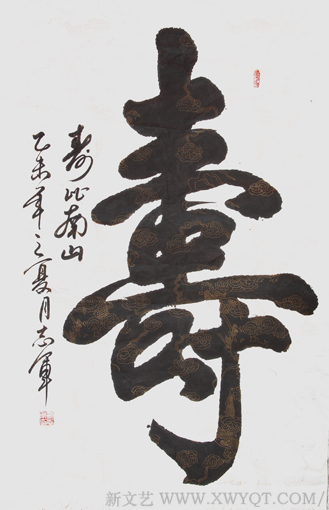 壽
寿比南山
乙未年之夏月志軍
新文艺 WWW.XWYQT.COM/